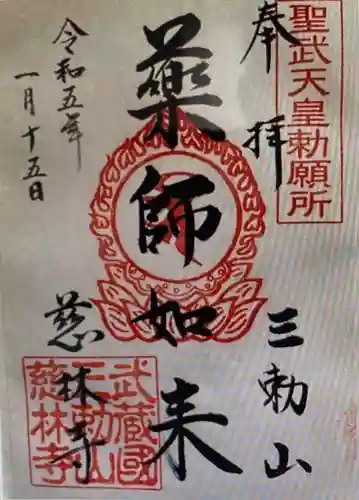 聖武天皇勅願所
奉拝
三勅山
薬師如来
慈林寺
令和五年
一月十五日
武蔵國
三勅山
慈林寺